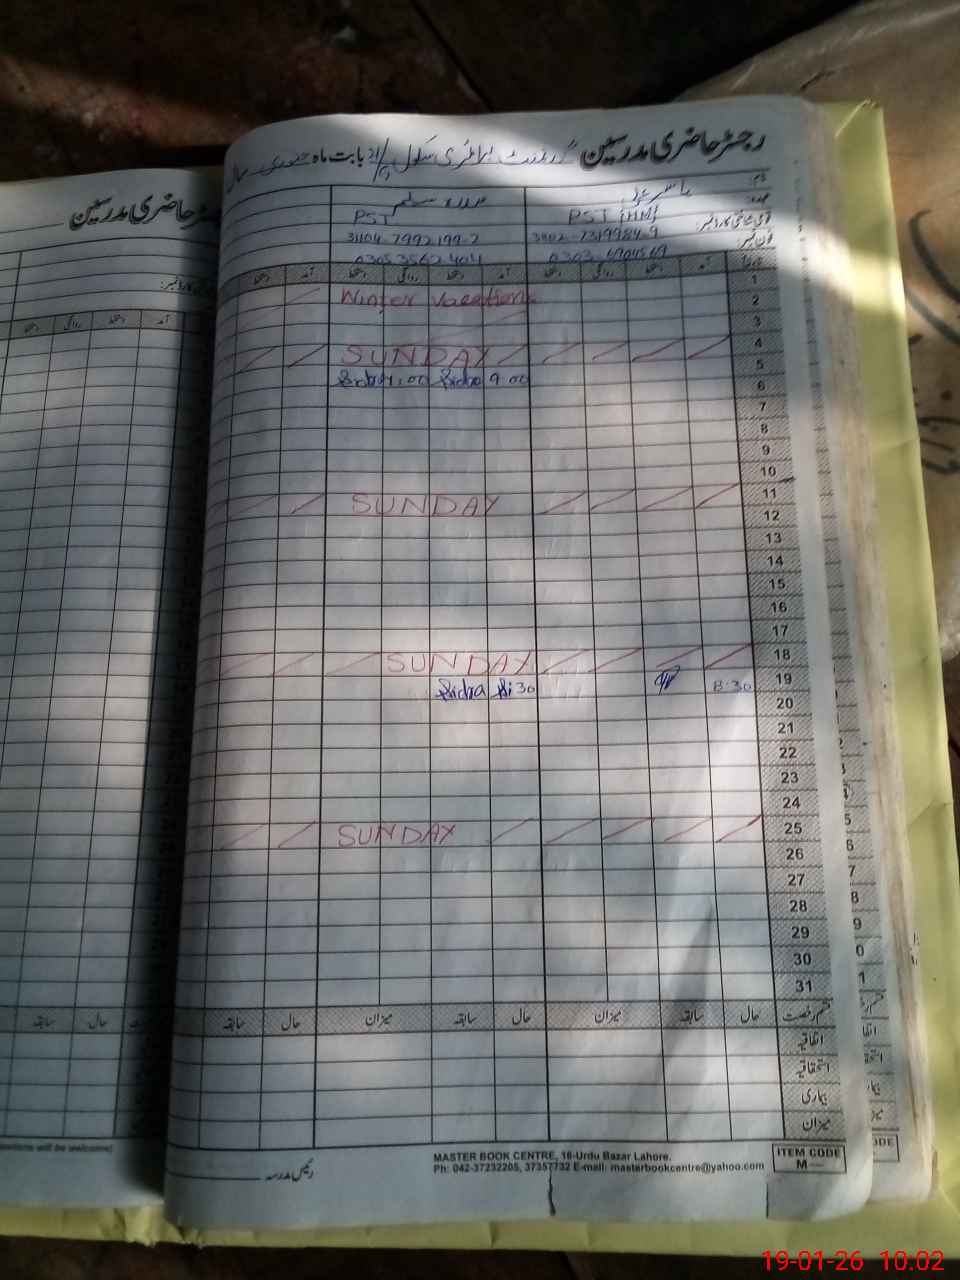 رجسٹر حاضری مدرسین گورنمنٹ پرائمری سکول بابت ماہ جنوری سال
رجسٹر حاضری مدرسین
نام:
عہدہ:
PST
PST
قومی شناختی کارڈ نمبر:
31104-7992199-2
31102-7319984-9
فون نمبر:
0305 3562404
0303
تاریخ
آمد دستخط روانگی دستخط آمد دستخط روانگی دستخط آمد دستخط
1
2 Winter Vacations
3
4 SUNDAY
5
6 Sidra 9 00
7
8
9
10
11 SUNDAY
12
13
14
15
16
17
18 SUNDAY
19 8:30 Sidra 8:30
20
21
22
23
24
25 SUNDAY
26
27
28
29
30
31
قسم رخصت حال سابقہ میزان حال سابقہ میزان حال سابقہ
اتفاقیہ
استحقاقیہ
بیماری
میزان
رئیس مدرسہ
MASTER BOOK CENTRE, 16-Urdu Bazar Lahore.
Ph: 042-37232205, 37357732 E-mail: masterbookcentre@yahoo.com
ITEM CODE
M—
19-01-26 10:02